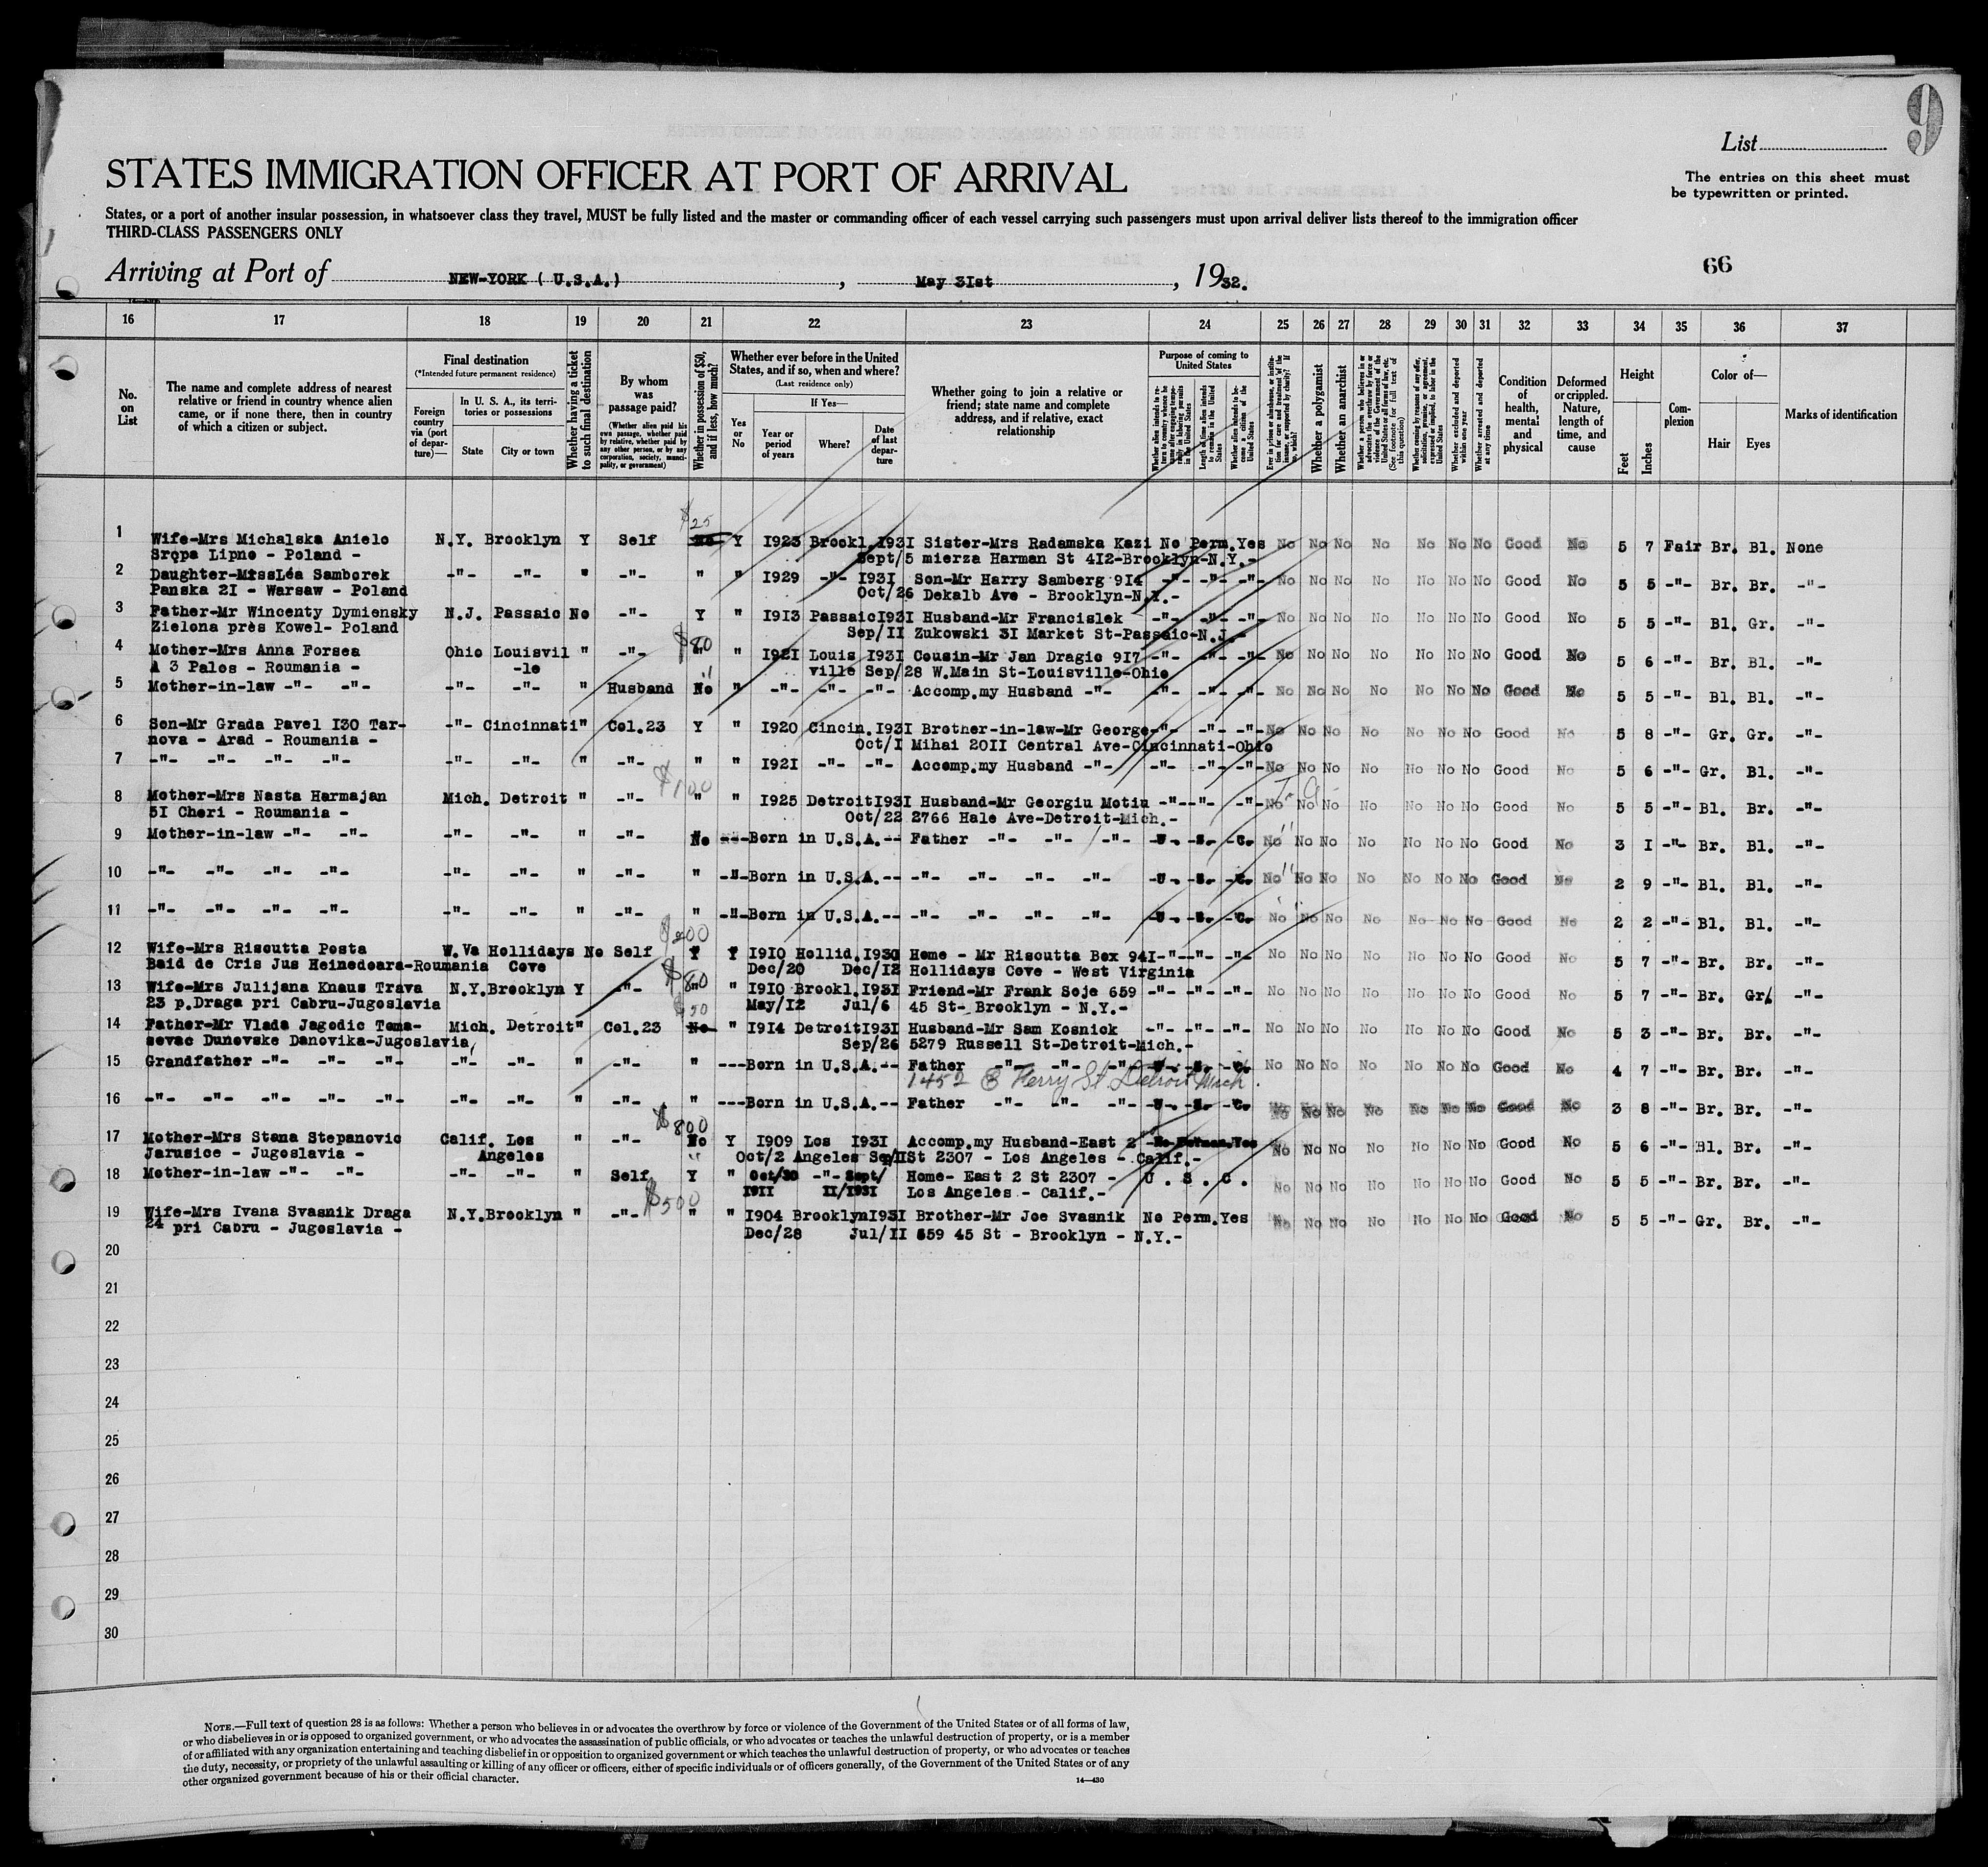 9
List
STATES IMMIGRATION OFFICER AT PORT OF ARRIVAL
The entries on this sheet must
be typewritten or printed.
States, or a port of another insular possession, in whatsoever class they travel, MUST be fully listed and the master or commanding officer of each vessel carrying such passengers must upon arrival deliver lists thereof to the immigration officer
THIRD-CLASS PASSENGERS ONLY
66
Arriving at Port of NEW-YORK ( U.S.A.) , May 3Ist , 1932.
16 17 18 19 20 21 22 23 24 25 26 27 28 29 30 31 32 33 34 35 36 37
No. on List
The name and complete address of nearest
relative or friend in country whence alien
came, or if none there, then in country
of which a citizen or subject.
Final destination
(*Intended future permanent residence)
Foreign country via (port of departure)—
In U. S. A., its territories or possessions
State
City or town
Whether having a ticket to such final destination
By whom was passage paid?
(Whether alien paid his own passage, whether paid by relative, whether paid by any other person, or by any corporation, society, municipality, or government)
Whether in possession of $50, and if less, how much?
Whether ever before in the United
States, and if so, when and where?
(Last residence only)
Yes or No
If Yes—
Year or period of years
Where?
Date of last departure
Whether going to join a relative or
friend; state name and complete
address, and if relative, exact
relationship
Purpose of coming to United States
Length of time alien intends to remain in the United States
Whether alien intends to become a citizen of the United States
Whether a polygamist
Whether an anarchist
Whether excluded and deported within one year
Whether arrested and deported at any time
Condition of health, mental and physical
Deformed or crippled. Nature, length of time, and cause
Height
Feet
Inches
Complexion
Color of—
Hair
Eyes
Marks of identification
$25
1 Wife-Mrs Michalska Anielo N.Y. Brooklyn Y Self No Y I923 Brookl.I93I Sister-Mrs Radamska Kazi No Perm.Yes No No No No No No No Good No 5 7 Fair Br. Bl. None
Sropa Lipno - Poland - Sept/5 mierza Harman St 4I2-Brooklyn-N.Y.-
2 Daughter-MissLéa Samborek -"- -"- " -"- " " I929 -"- I93I Son-Mr Harry Samberg 9I4 -"- -"- -"- No No No No No No No Good No 5 5 -"- Br. Br. -"-
Panska 2I - Warsaw - Poland Oct/26 Dekalb Ave - Brooklyn-N.Y.-
3 Father-Mr Wincenty Dymiensky N.J. Passaic No -"- Y " I9I3 PassaicI93I Husband-Mr Francislek -"- -"- -"- No No No No No No No Good No 5 5 -"- Bl. Gr. -"-
Zielona près Kowel- Poland Sep/II Zukowski 3I Market St-Passaic-N.J.-
$80
4 Mother-Mrs Anna Forsea Ohio Louisvil " -"- " " I92I Louis I93I Cousin-Mr Jan Dragic 9I7 -"- -"- -"- No No No No No No No Good No 5 6 -"- Br. Bl. -"-
A 3 Palos - Roumania - -le ville Sep/28 W.Main St-Louisville-Ohio
5 Mother-in-law -"- -"- -"- -"- " Husband No " -"- -"- -"- Accomp.my Husband -"- -"- -"- -"- No No No No No No No Good No 5 5 -"- Bl. Bl. -"-
6 Son-Mr Grada Pavel I30 Tar- -"- Cincinnati" Col.23 Y " I920 Cincin.I93I Brother-in-law-Mr George-"- -"- -"- No No No No No No No Good No 5 8 -"- Gr. Gr. -"-
nova - Arad - Roumania - Oct/I Mihai 20II Central Ave-Cincinnati-Ohio
7 -"- -"- -"- -"- -"- -"- " -"- " " I92I -"- -"- Accomp.my Husband -"- -"- -"- -"- No No No No No No No Good No 5 6 -"- Gr. Bl. -"-
$100
8 Mother-Mrs Nasta Harmajan Mich. Detroit " -"- " " I925 DetroitI93I Husband-Mr Georgiu Motiu -"- -"- -"- No No No No No No No Good No 5 5 -"- Bl. Br. -"-
5I Cheri - Roumania - Oct/22 2766 Hale Ave-Detroit-Mich.-
9 Mother-in-law -"- -"- -"- -"- " -"- No ---Born in U.S.A.-- Father -"- -"- -"- -U. -S. -C. No No No No No No No Good No 3 I -"- Br. Bl. -"-
10 -"- -"- -"- -"- -"- -"- " -"- " -"-Born in U.S.A.-- -"- -"- -"- -"- -U. -S. -C. No No No No No No No Good No 2 9 -"- Bl. Bl. -"-
11 -"- -"- -"- -"- -"- -"- " -"- " -"-Born in U.S.A.-- -"- -"- -"- -"- -U. -S. -C. No No No No No No No Good No 2 2 -"- Bl. Bl. -"-
$200
12 Wife-Mrs Riscutta Posta W.Va Hollidays No Self Y Y I9I0 Hollid.I930 Home - Mr Riscutta Box 94I-"- -"- -"- No No No No No No No Good No 5 7 -"- Br. Br. -"-
Baid de Cris Jus Heinedoara-Roumania Cove Dec/20 Dec/I2 Hollidays Cove - West Virginia
$80
13 Wife-Mrs Julijana Knaus Trava N.Y.Brooklyn Y -"- " " I9I0 Brookl.I93I Friend-Mr Frank Soje 659 -"- -"- -"- No No No No No No No Good No 5 7 -"- Br. Gr. -"-
23 p.Draga pri Cabru-Jugoslavia May/I2 Jul/6 45 St- Brooklyn - N.Y.-
$50
14 Father-Mr Vlada Jagodic Toma- Mich. Detroit" Col.23 No " I9I4 DetroitI93I Husband-Mr Sam Kosnick -"- -"- -"- No No No No No No No Good No 5 3 -"- Br. Br. -"-
sevac Dunovske Danovika-Jugoslavia Sep/26 5279 Russell St-Detroit-Mich.-
15 Grandfather -"- -"- -"- -"- -"- " -"- " ---Born in U.S.A.-- Father -"- -"- -"- -U. -S. -C. No No No No No No No Good No 4 7 -"- Br. Br. -"-
1452 E Ferry St. Detroit Mich.
16 -"- -"- -"- -"- -"- -"- -"- " -"- " ---Born in U.S.A.-- Father -"- -"- -"- -U. -S. -C. No No No No No No No Good No 3 8 -"- Br. Br. -"-
$800
17 Mother-Mrs Stana Stepanovic Calif. Los " -"- No Y I909 Los I93I Accomp.my Husband-East 2 No Perman.Yes No No No No No No No Good No 5 6 -"- Bl. Br. -"-
Jarusice - Jugoslavia - Angeles Oct/2 Angeles Sep/IISt 2307 - Los Angeles - Calif.-
18 Mother-in-law -"- -"- -"- -"- " Self Y " Oct/30 -"- Sept/ Home- East 2 St 2307 - U . S . C . No No No No No No No Good No 5 5 -"- Br. Br. -"-
I9II II/I93I Los Angeles - Calif.-
$500
19 Wife-Mrs Ivana Svasnik Draga N.Y.Brooklyn " -"- " " I904 BrooklynI93I Brother-Mr Joe Svasnik No Perm.Yes No No No No No No No Good No 5 5 -"- Gr. Br. -"-
24 pri Cabru - Jugoslavia - Dec/28 Jul/II 659 45 St - Brooklyn - N.Y.-
20
21
22
23
24
25
26
27
28
29
30
NOTE.—Full text of question 28 is as follows: Whether a person who believes in or advocates the overthrow by force or violence of the Government of the United States or of all forms of law,
or who disbelieves in or is opposed to organized government, or who advocates the assassination of public officials, or who advocates or teaches the unlawful destruction of property, or is a member
of or affiliated with any organization entertaining and teaching disbelief in or opposition to organized government or which teaches the unlawful destruction of property, or who advocates or teaches
the duty, necessity, or propriety of the unlawful assaulting or killing of any officer or officers, either of specific individuals or of officers generally, of the Government of the United States or of any
other organized government because of his or their official character.
14—430